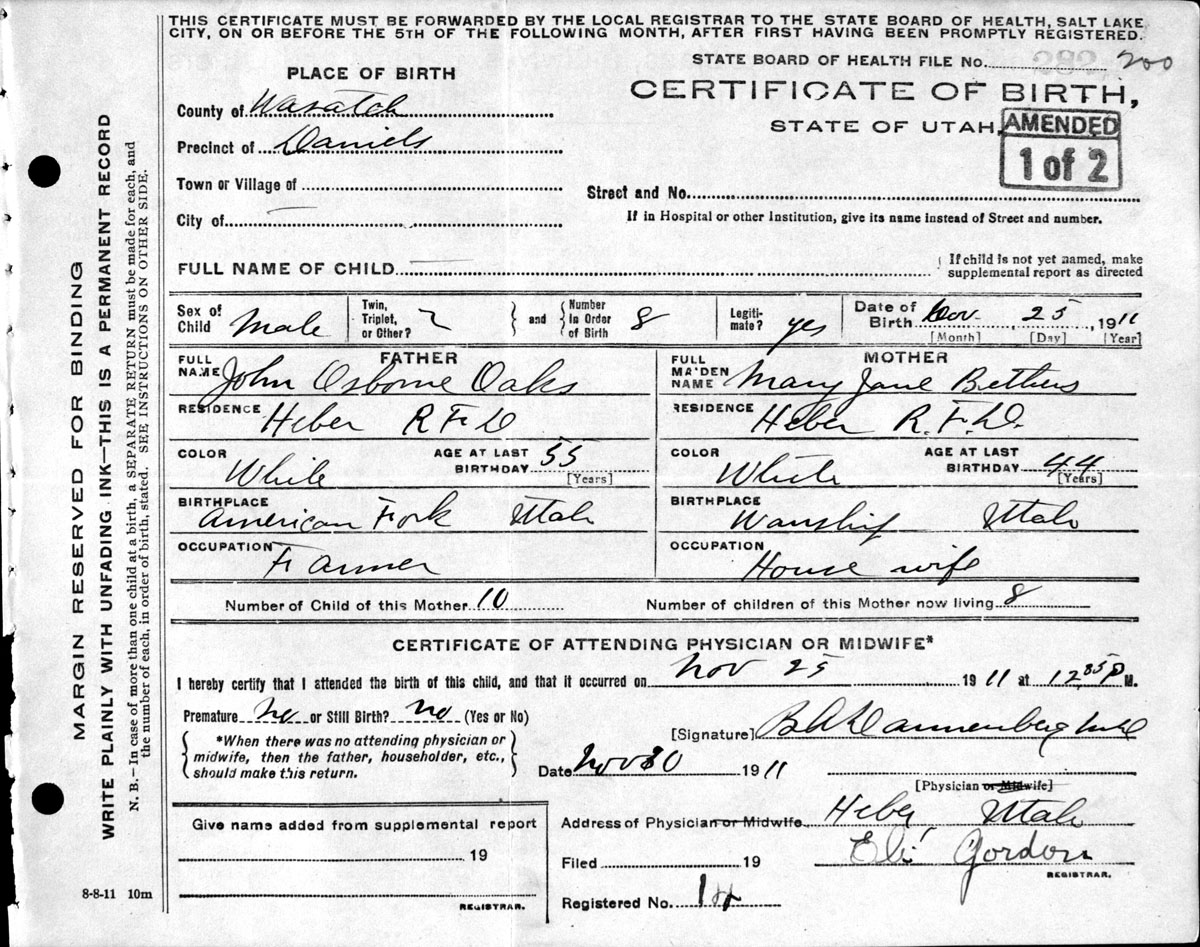 THIS CERTIFICATE MUST BE FORWARDED BY THE LOCAL REGISTRAR TO THE STATE BOARD OF HEALTH, SALT LAKE
CITY, ON OR BEFORE THE 5TH OF THE FOLLOWING MONTH, AFTER FIRST HAVING BEEN PROMPTLY REGISTERED.
STATE BOARD OF HEALTH FILE No. 282 200
PLACE OF BIRTH
CERTIFICATE OF BIRTH,
County of Wasatch
STATE OF UTAH.
AMENDED
1 of 2
Precinct of Daniels
Town or Village of
Street and No.
City of
If in Hospital or other Institution, give its name instead of Street and number.
FULL NAME OF CHILD
If child is not yet named, make
supplemental report as directed
Sex of Child Male Twin, Triplet, or Other? and Number In Order of Birth 8 Legiti-mate? yes Date of Birth Nov. 25, 1911
[Month] [Day] [Year]
FATHER MOTHER
FULL NAME John Osborne Oaks FULL MAIDEN NAME Mary Jane Bethers
RESIDENCE Heber R F D RESIDENCE Heber R. F. D.
COLOR White AGE AT LAST BIRTHDAY 55 [Years] COLOR White AGE AT LAST BIRTHDAY 44 [Years]
BIRTHPLACE American Fork Utah BIRTHPLACE Wanship Utah
OCCUPATION Farmer OCCUPATION House wife
Number of Child of this Mother 10 Number of children of this Mother now living 8
CERTIFICATE OF ATTENDING PHYSICIAN OR MIDWIFE*
I hereby certify that I attended the birth of this child, and that it occurred on Nov 25 1911 at 12 P M.
Premature No or Still Birth? no (Yes or No)
[Signature] Dannenberg
*When there was no attending physician or
midwife, then the father, householder, etc.,
should make this return.
Date Nov 30 1911
[Physician or Midwife]
Give name added from supplemental report
Address of Physician or Midwife Heber Utah
19
Filed 19 Eli Gordon
REGISTRAR.
Registered No.
REGISTRAR.
8-8-11 10m
MARGIN RESERVED FOR BINDING
WRITE PLAINLY WITH UNFADING INK—THIS IS A PERMANENT RECORD
N. B.—In case of more than one child at a birth, a SEPARATE RETURN must be made for each, and
the number of each, in order of birth, stated. SEE INSTRUCTIONS ON OTHER SIDE.